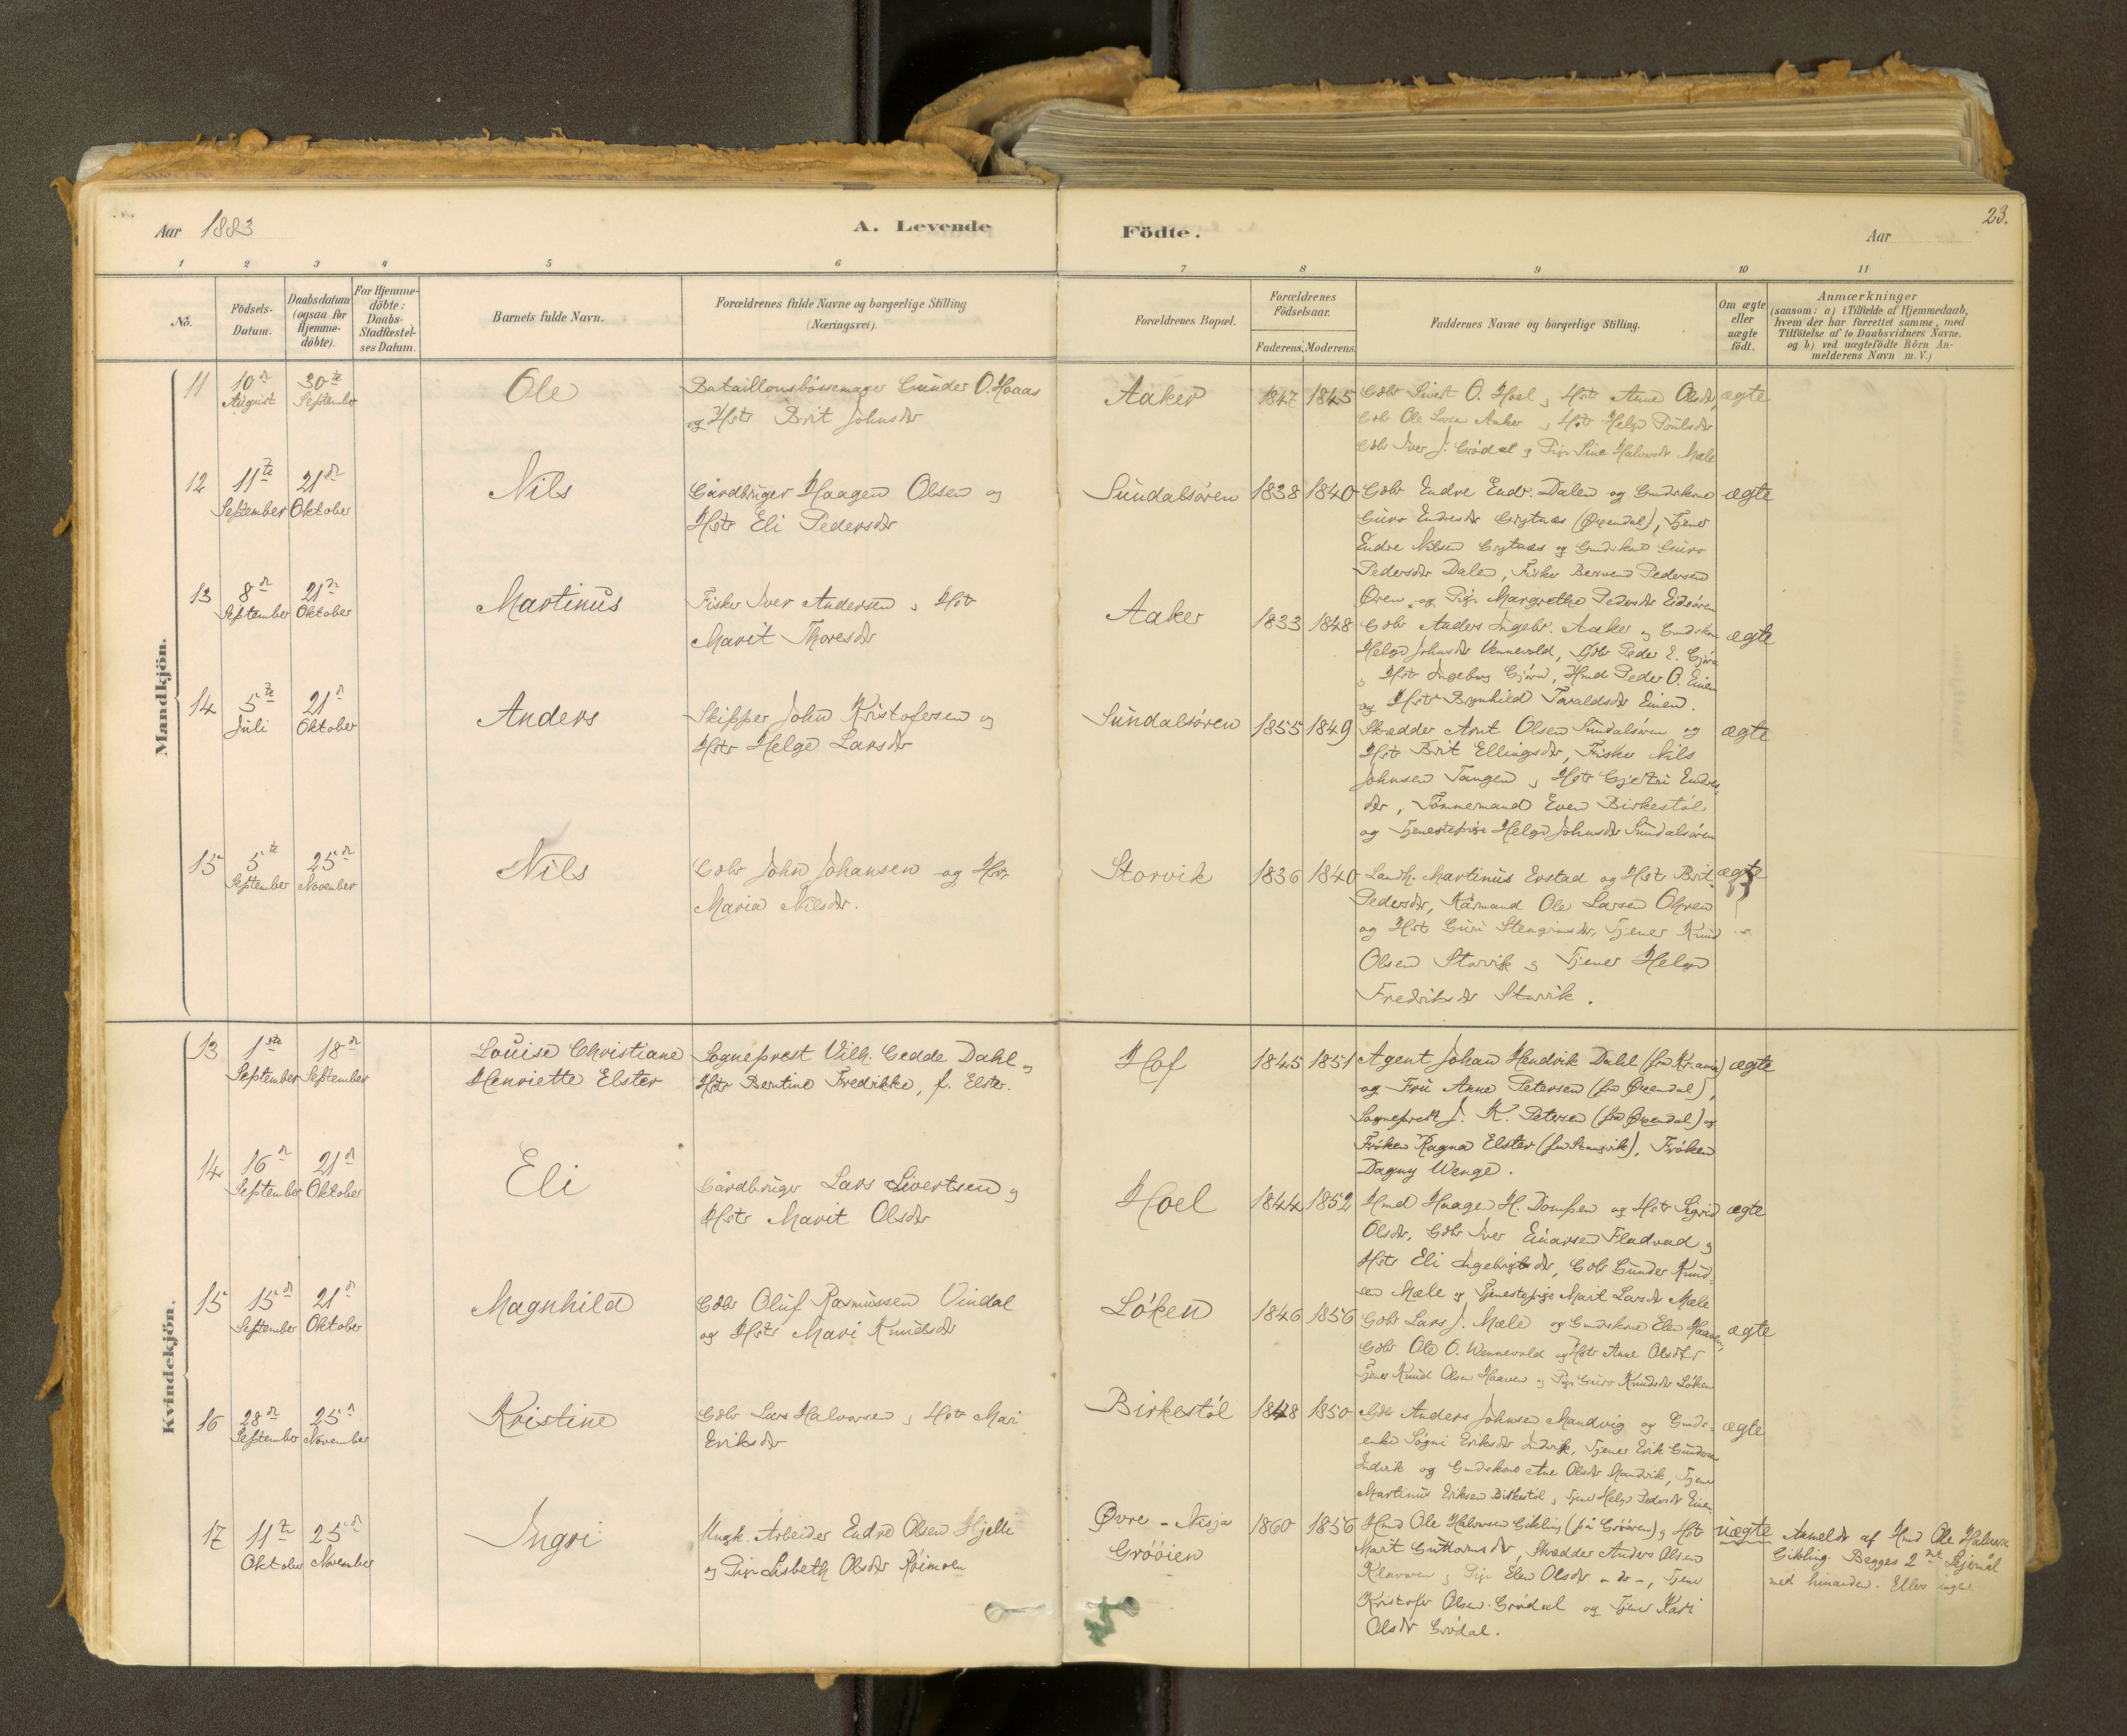 Aar 1883
A. Levende
Födte.
Aar
23.
1 2 3 4 5 6 7 8 9 10 11
No.
Födsels-Datum.
Daabsdatum (ogsaa for Hjemme-döbte).
For Hjemme-döbte: Daabs-Stadfæstel-ses Datum.
Barnets fulde Navn.
Forældrenes fulde Navne og borgerlige Stilling
(Næringsvei).
Forældrenes Bopæl.
Forældrenes Födselsaar.
Faderens. Moderens.
Faddernes Navne og borgerlige Stilling.
Om ægte eller uægte födt.
Anmærkninger
(saasom: a) i Tilfælde af Hjemmedaab,
hvem der har forrettet samme, med
Tilföielse af to Daabsvidners Navne.
og b) ved uægtefödte Börn An-
melderens Navn m. V.)
Mandkjön.
11 10de August 30te September Ole
Bataillonsbössemager Gunder O. Hoaas
og Hstr Brit Johnsdr
Aaker 1847 1845
Gbr Sivert O. Hoel, Hstr Anne Olsdr,
Gbr Ole Larsen Aaker, Hstr Helge Poulsdr
Gbr Iver J. Grödal og Pige Sine Halvorsdr Mæle
ægte
12 11te September 21de Oktober Nils
Gårdbruger Haagen Olsen og
Hstr Eli Pedersdr
Sundalsören 1838 1840
Gbr Endre Endr. Dalen og Gmdskone
Guro Endresdr Grytnes (Øxendal), Tjener
Endre Nilsen Grytnes og Gmdskone Guro
Pedersdr Dalen, Fisker Bersvend Pedersen
Øren og Pige Margrethe Pedersdr Eidsören
ægte
13 8de September 21de Oktober Martinus
Fisker Iver Andersen, Hstr
Marit Thoresdr
Aaker 1833 1848
Gbr Anders Ingebr. Aaker og Gmdskone
Helge Johnsdr Vennevold, Gbr Peder E. Gjöra
, Hstr Ingeborg Gjöra, Hmd Peder O. Einen
og Hstr Brynhild Taraldsdr Einen.
ægte
14 5te Juli 21de Oktober Anders
Skipper John Kristofersen og
Hstr Helge Larsdr
Sundalsören 1855 1849
Skrædder Arnt Olsen Sundalsören og
Hstr Brit Ellingsdr, Fisker Nils
Johnsen Tangen, Hstr Gjertru Endres-
dr, Tömmermand Even Birkestöl
og Tjenestepige Helge Johnsdr Sundalsören
ægte
15 5te September 25de November Nils
Gbr John Johansen og Hstr
Maria Nilsdr.
Storvik 1836 1840
Landh. Martinus Erstad og Hstr Brit
Pedersdr, Kårmand Ole Larsen Öhren
og Hstr Guri Stengrimsdr, Tjener Knud
Olsen Storvik og Tjener Helge
Fredriksdr Storvik.
ægte
Kvindekjön.
13 1ste September 18de September
Louise Christiane
Henriette Elster
Sogneprest Vilh. Gedde Dahl og
Hstr Bentine Fredrikke, f. Elster.
Hof 1845 1851
Agent Johan Hendrik Dahl (fra Kr.ania)
og Fru Anne Petersen (fra Øxendal),
Sogneprest J. K. Petersen (fra Øxendal) og
Fröken Ragna Elster, Fröken
Dagny Wenge.
ægte
14 16de September 21de Oktober Eli
Gårdbruger Lars Sivertsen og
Hstr Marit Olsdr
Hoel 1844 1852
Hmd Haagen H. Dompen og Hstr Sigrid
Olsdr, Gbr Iver Einarsen Fladvad og
Hstr Eli Ingebrigtsdr, Gbr Gunder Knud-
sen Mæle og Tjenestepige Marit Larsdr Mæle
ægte
15 15de September 21de Oktober Magnhild
Gbr Oluf Rasmussen Vindal
og Hstr Mari Knudsdr
Löken 1846 1856
Gbr Lars J. Mæle og Gmdskone Elen Haaven,
Gbr Ole O. Wennevold og Hstr Anne Olsdtr
Tjener Knud Olsen Haaven og Pige Guro Knudsdr Löken
ægte
16 28de September 25de November Kristine
Gbr Lars Halvorsen, Hstr Mari
Eriksdr
Birkestöl 1848 1850
Gbr Anders Johnsen Mandvig og Gmds-
enke Sögni Eriksdr Indvik, Tjener Erik Gundersen
Indvik og Gmdskone Ane Olsdr Mandvik, Tjener
Martinus Eriksen Birkestöl, Tjener Helge Pedersdr Einen
ægte
17 11te Oktober 25de November Ingri
Ungk. Arbeider Endre Olsen Hjelle
og Pige Lisbeth Olsdr Röimoen
Øvre - Nisja
Gröóien
1860 1856
Hmd Ole Halvorsen Gikling (på Gröören) og Hstr
Marit Guttormsdr, Skrædder Anders Olsen
Klavven og Pige Elen Olsdr - do -, Tjener
Kristofer Olsen Grödal og Tjener Kari
Olsdr Grödal.
uægte
Anmeldt af Hmd Ole Halvorsen
Gikling. Begges 2det Leiermål
med hinanden. Ellers ingen.